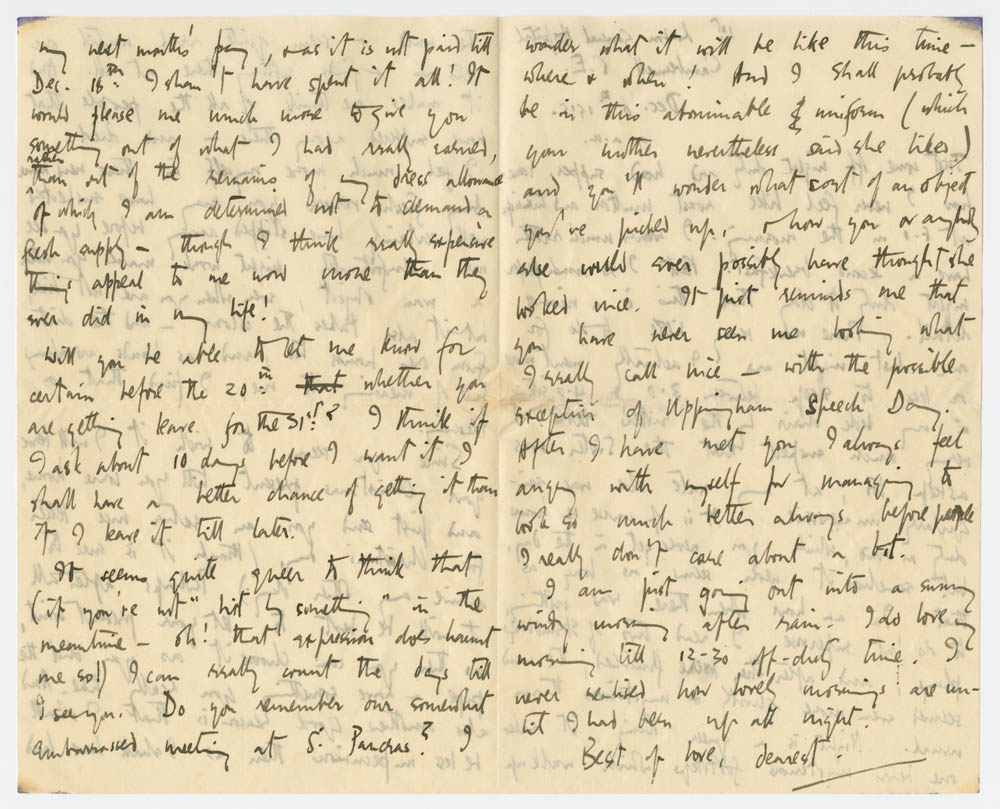 my next months' pay, & as it is not paid till
Dec. 18th I shan't have spent it all! It
would please me much more to give you
something out of what I had really earned,
rather than out of the remains of my dress allowance
of which I am determined not to demand a
fresh supply — though I think really expensive
things appeal to me now more than they
ever did in my life!
Will you be able to let me know for
certain before the 20th that whether you
are getting leave for the 31st? I think if
I ask about 10 days before I want it I
shall have a better chance of getting it than
if I leave it till later.
It seems quite queer to think that
(if you're not "hit by something" in the
meantime — oh! that expression does haunt
me so!) I can really count the days till
I see you. Do you remember our somewhat
embarrassed meeting at St. Pancras? I
wonder what it will be like this time —
where & when! And I shall probably
be in this abominable uniform (which
your mother nevertheless said she liked)
and you'll wonder what sort of an object
you've picked up, & how you or anybody
else would ever possibly have thought she
looked nice. It just reminds me that
you have never seen me looking what
I really call nice — with the possible
exception of Uppingham Speech Day.
After I have met you I always feel
angry with myself for managing to
look so much better always before people
I really don't care about a bit.
I am just going out into a sunny
windy morning after rain. I do love my
morning till 12-30 off-duty time. I
never realised how lovely mornings are un-
til I had been up all night.
Best of love, dearest.